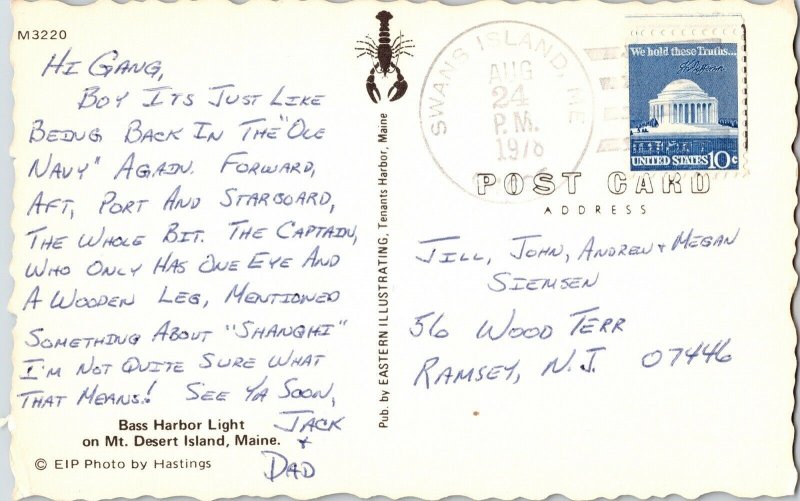 M3220
HI GANG,
BOY ITS JUST LIKE
BEING BACK IN THE "OLE
NAVY" AGAIN. FORWARD,
AFT, PORT AND STARBOARD,
THE WHOLE BIT. THE CAPTAIN,
WHO ONLY HAS ONE EYE AND
A WOODEN LEG, MENTIONED
SOMETHING ABOUT "SHANGHI"
I'M NOT QUITE SURE WHAT
THAT MEANS! SEE YA SOON,
JACK
+
DAD
Bass Harbor Light
on Mt. Desert Island, Maine.
© EIP Photo by Hastings
Pub. by EASTERN ILLUSTRATING, Tenants Harbor, Maine
SWANS ISLAND, ME
AUG
24
P.M.
1978
We hold these Truths...
UNITED STATES 10c
POST CARD
ADDRESS
JILL, JOHN, ANDREW + MEGAN
SIEMSEN
56 WOOD TERR
RAMSEY, N.J. 07446